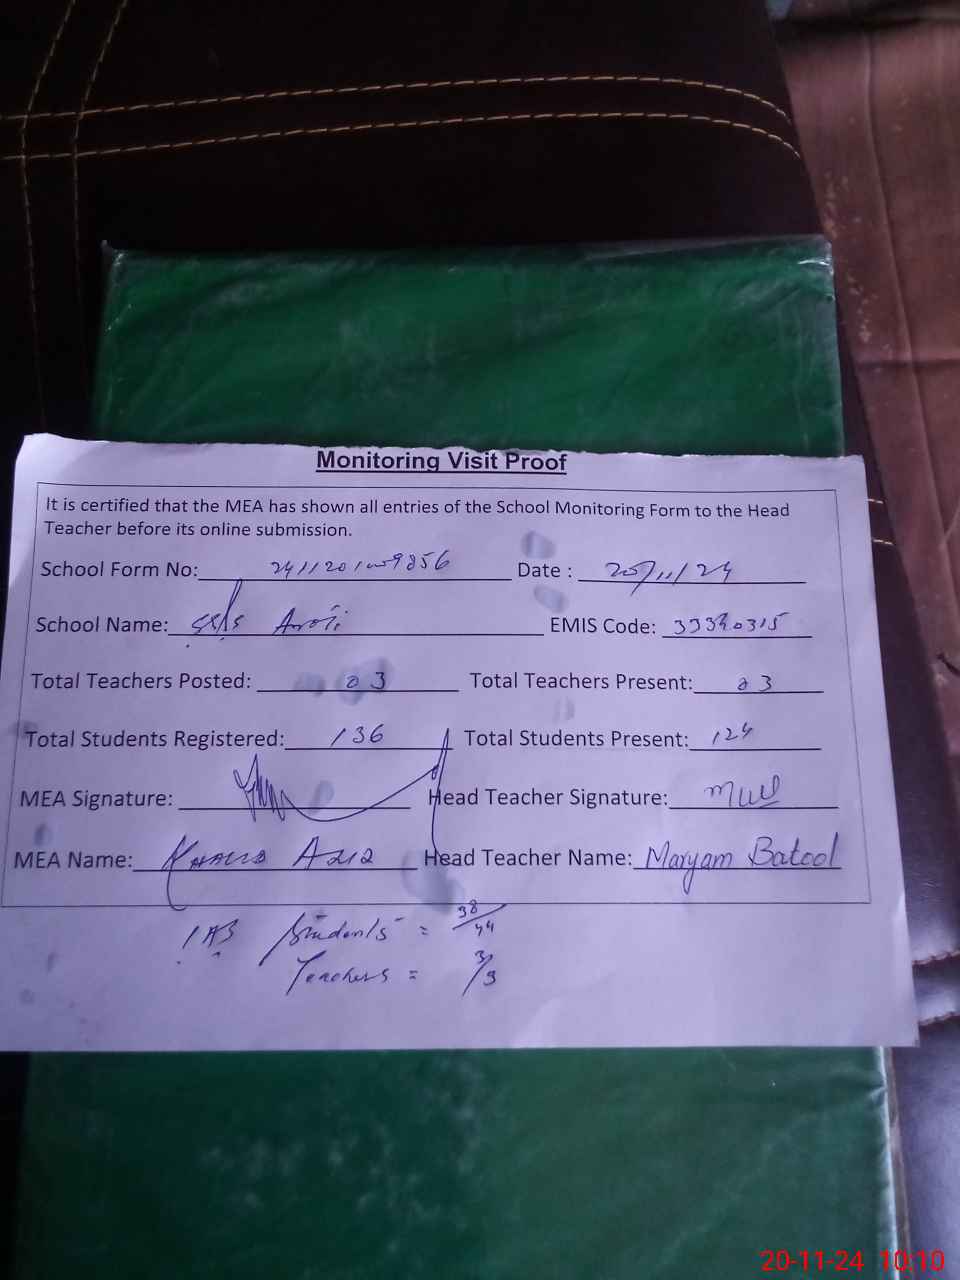 Monitoring Visit Proof
It is certified that the MEA has shown all entries of the School Monitoring Form to the Head
Teacher before its online submission.
School Form No: Date : 20/11/24
School Name: EMIS Code:
Total Teachers Posted: 03 Total Teachers Present: 03
Total Students Registered: 136 Total Students Present: 124
MEA Signature: Head Teacher Signature:
MEA Name: Khalid Aziz Head Teacher Name: Maryam Batool
Students = 38/44
Teachers = 3/3
20-11-24 10:10